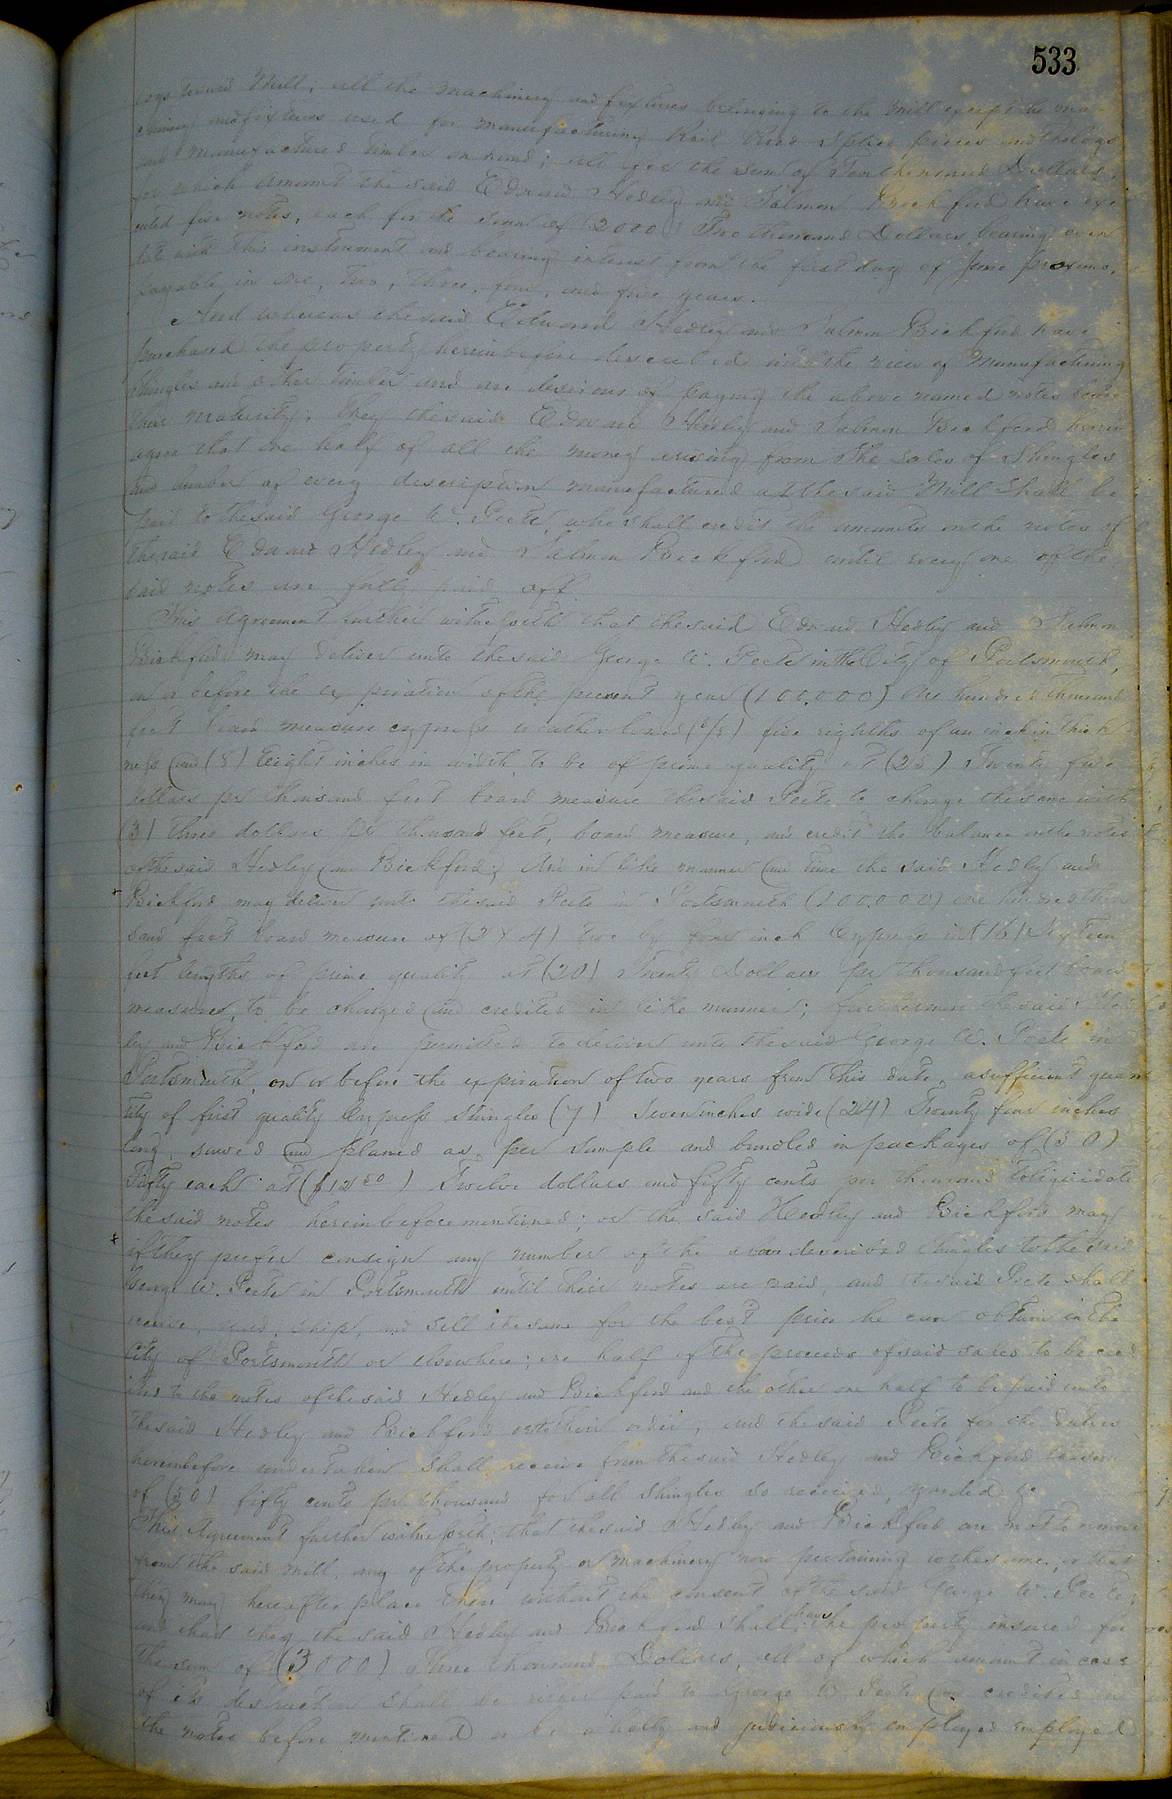 533
logs toward Mill, all the machinery and fixtures belonging to the Mill except the ma
chinery and fixtures used for manufacturing Rail Road Splice pieces and the logs
and manufactured timber on hand; all for the sum of Ten thousand Dollars,
for which amount the said Edward Hedley and Salmon Bickford have exe
cuted five notes, each for the sum of (2000) Two thousand Dollars bearing even
date with this instrument and bearing interest from the first day of June proximo,
payable in one, two, three, four, and five years.
And whereas the said Edward Hedley and Salmon Bickford have
purchased the property hereinbefore described with the view of manufacturing
Shingles and other timber and are desirous of paying the above named notes before
their maturity; they the said Edward Hedley and Salmon Bickford herein
agree that one half of all the money arising from the sales of Shingles
and lumber of every description manufactured at the said Mill shall be
paid to the said George W. Peete, who shall credit the amounts on the notes of
the said Edward Hedley and Salmon Bickford until every one of the
said notes are fully paid off.
This Agreement further witnesseth that the said Edward Hedley and Salmon
Bickford may deliver unto the said George W. Peete in the City of Portsmouth,
on or before the expiration of the present year (100,000) One hundred thousand
feet board measure cypress weather board (5/8) five eighths of an inch in thick
ness and (8) Eight inches in width to be of prime quality at (25) Twenty five
dollars per thousand feet board measure the said Peete to charge the same with
(3) three dollars per thousand feet, board measure, and credit the balance on the notes
of the said Hedley and Bickford; And in like manner and time the said Hedley and
Bickford may deliver unto the said Peete in Portsmouth (100,000) one hundred thou
sand feet board measure of (2 x 4) two by four inch Cypress in (16) Sixteen
feet lengths of prime quality at (20) Twenty Dollars per thousand feet board
measure, to be charged and credited in like manner; furthermore the said Hed
ley and Bickford are permitted to deliver unto the said George W. Peete in
Portsmouth, on or before the expiration of two years from this date, a sufficient quan
tity of first quality Cypress Shingles (7) Seven inches wide (24) Twenty four inches
long, sawed and planed as per sample and bundled in packages of (50)
Fifty each at ($12 50) Twelve dollars and fifty cents per thousand to liquidate
the said notes hereinbefore mentioned; or the said Hedley and Bickford may
if they prefer consign any number of the above described Shingles to the said
George W. Peete in Portsmouth until their notes are paid, and the said Peete shall
receive, yard, ship, and sell the same for the best price he can obtain in the
City of Portsmouth or elsewhere; one half of the proceeds of said sales to be cred
ited to the notes of the said Hedley and Bickford and the other one half to be paid unto
the said Hedley and Bickford or to their order, and the said Peete for the duties
hereinbefore undertaken shall receive from the said Hedley and Bickford the sum
of (50) fifty cents per thousand for all Shingles so received, yarded &c
This Agreement further witnesseth; that the said Hedley and Bickford are not to remove
from the said mill, any of the property or machinery now pertaining to the same, or that
they may hereafter place there without the consent of the said George W. Peete,
and that they the said Hedley and Bickford shall have the property insured for
the sum of (3000) Three thousand Dollars, all of which amount in case
of its destruction shall be either paid to George W. Peete and credited on
the notes before mentioned or be wholly and judiciously employed employed